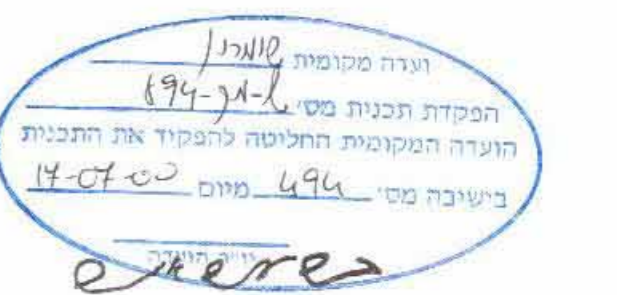 ועדה מקומית שומרון
הפקדת תכנית מס' ש-מק-894
הועדה המקומית החליטה להפקיד את התכנית
בישיבה מס' 494 מיום 17-07-00
יו"ר הועדה